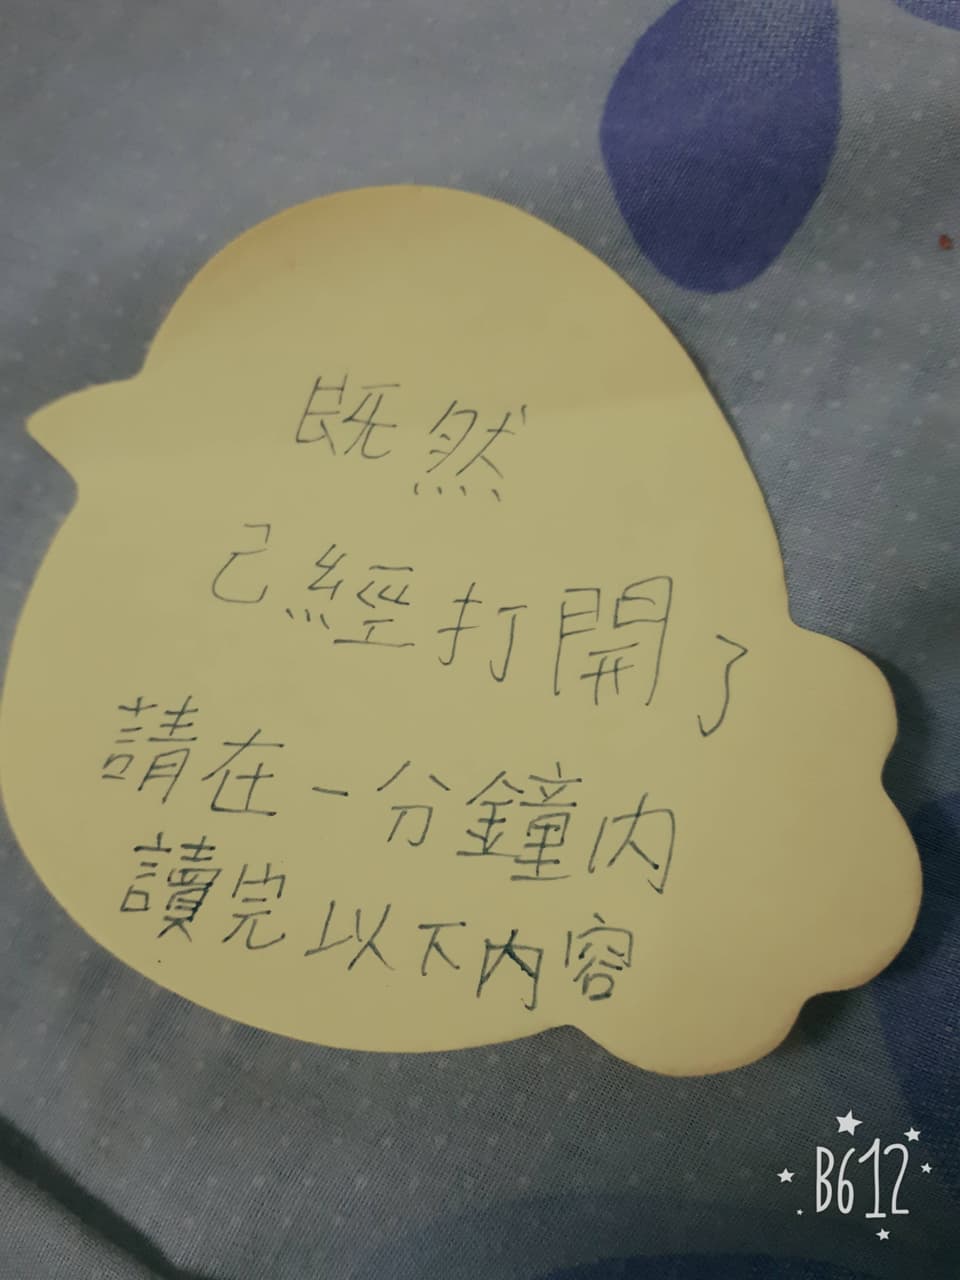 既然
己經打開了
請在一分鐘內
讀完以下內容
B612